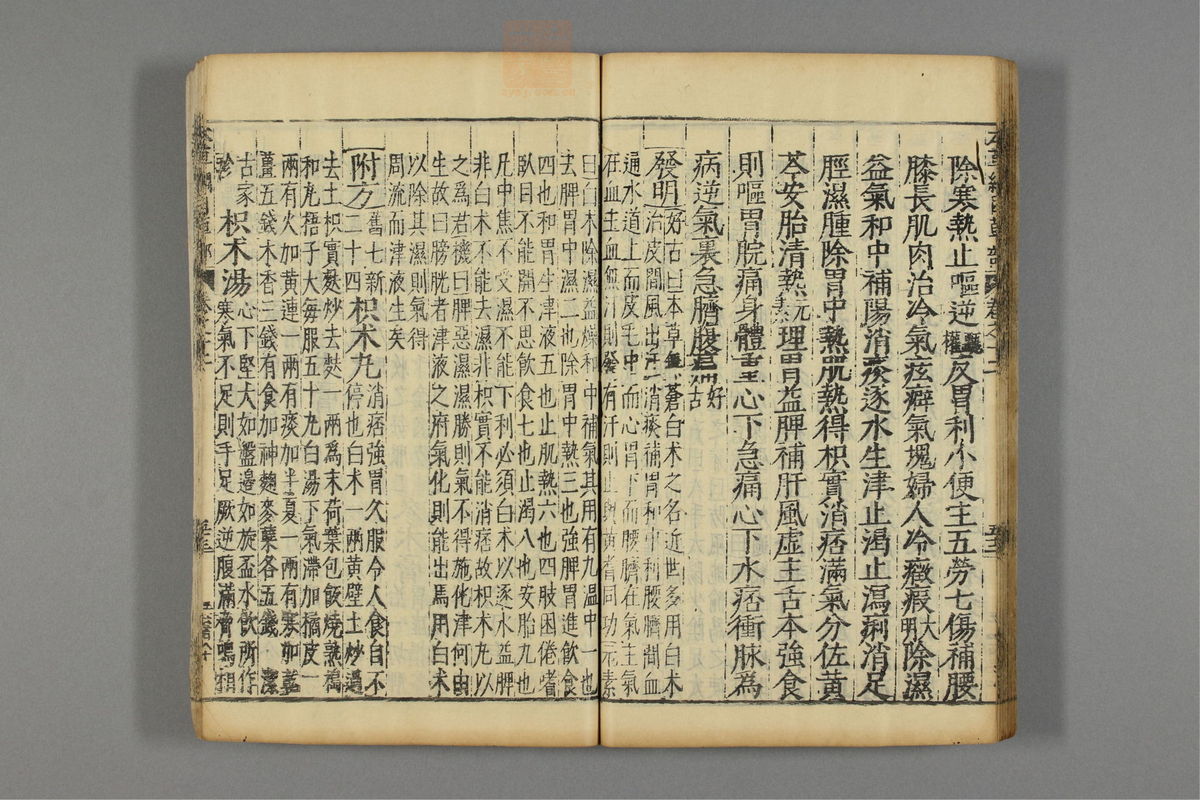 除寒熱止嘔逆甄權反胃利小便主五勞七傷補腰
膝長肌肉治冷氣痃癖氣塊婦人冷癥瘕大明除濕
益氣和中補陽消痰逐水生津止渴止瀉痢消足
脛濕腫除胃中熱肌熱得枳實消痞滿氣分佐黃
芩安胎清熱元素理胃益脾補肝風虛主舌本強食
則嘔胃脘痛身體重心下急痛心下水痞衝脉為
病逆氣裏急臍腹痛好古
發明好古曰本草無蒼白朮之名近世多用白朮
治皮間風出汗消痰補胃和中利腰臍間血
通水道上而皮毛中而心胃下而腰臍在氣主氣
在血主血無汗則發有汗則止與黃耆同功元素
曰白朮除濕益燥和中補氣其用有九溫中一也
去脾胃中濕二也除胃中熱三也強脾胃進飲食
四也和胃生津液五也止肌熱六也四肢困倦嗜
臥目不能開不思飲食七也止渴八也安胎九也
凡中焦不受濕不能下利必須白朮以逐水益脾
非白朮不能去濕非枳實不能消痞故枳朮丸以
之為君機曰脾惡濕濕勝則氣不得施化津何由
生故曰膀胱者津液之府氣化則能出焉用白朮
以除其濕則氣得
周流而津液生矣
附方舊七新二十四枳朮丸消痞強胃久服令人食自不
停也白朮一兩黃壁土炒過
去土枳實麩炒去麩一兩為末荷葉包飯燒熟搗
和丸梧子大每服五十丸白湯下氣滯加橘皮一
兩有火加黃連一兩有痰加半夏一兩有寒加乾
薑五錢木香三錢有食加神麴麥蘖各五錢潔
古家珍枳朮湯心下堅大如盤邊如旋盃水飲所作
寒氣不足則手足厥逆腹滿脅鳴相
本草綱目草部
卷之十二
五十三